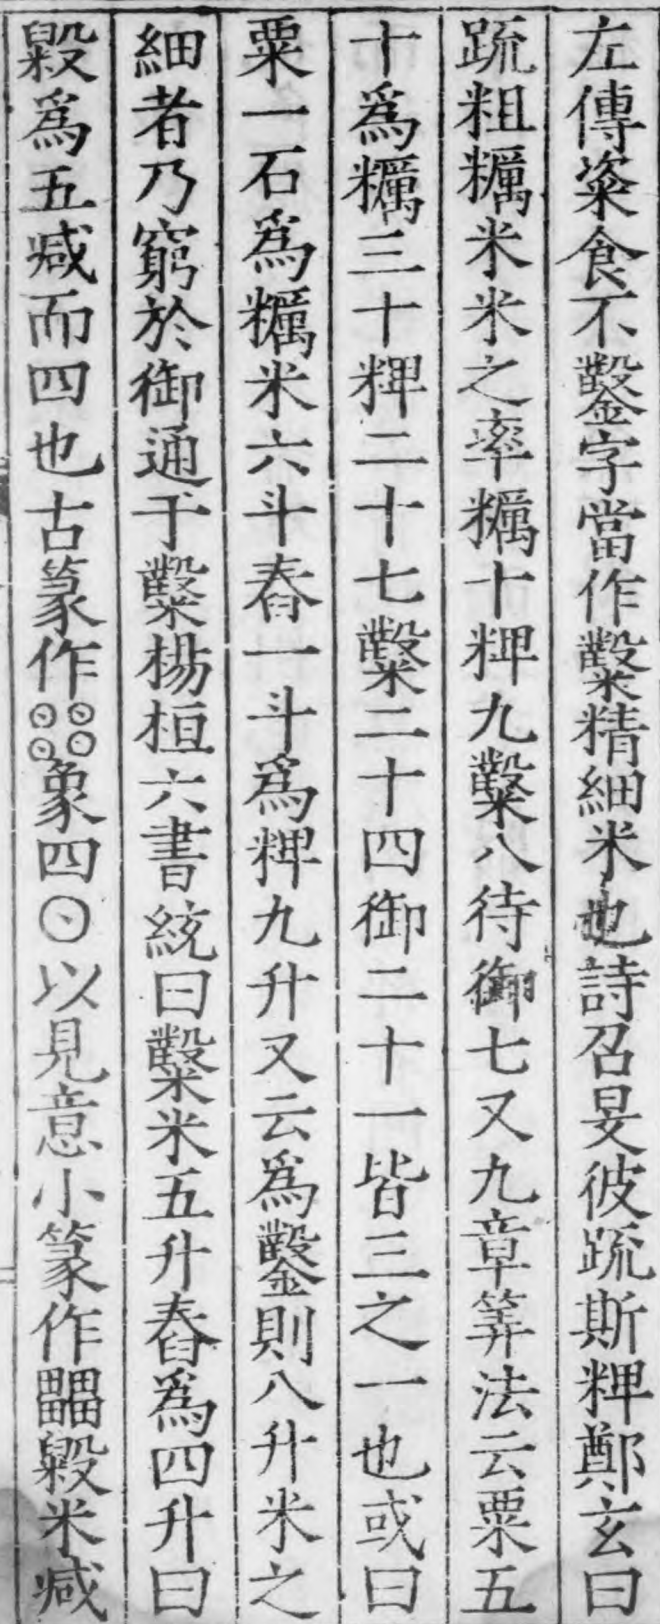 左傳粢食不鑿字當作糳精細米也詩召旻彼䟽斯粺鄭玄曰
䟽粗糲米米之率糲十粺九糳八待御七又九章筭法云粟五
十爲糲三十粺二十七糳二十四御二十一皆三之一也或曰
粟一石爲糲米六斗舂一斗爲粺九升又云爲鑿則八升米之
細者乃窮於御通于糳楊桓六書統曰糳米五升舂爲四升曰
毇爲五减而四也古篆作象四⊙以見意小篆作畾毇米减